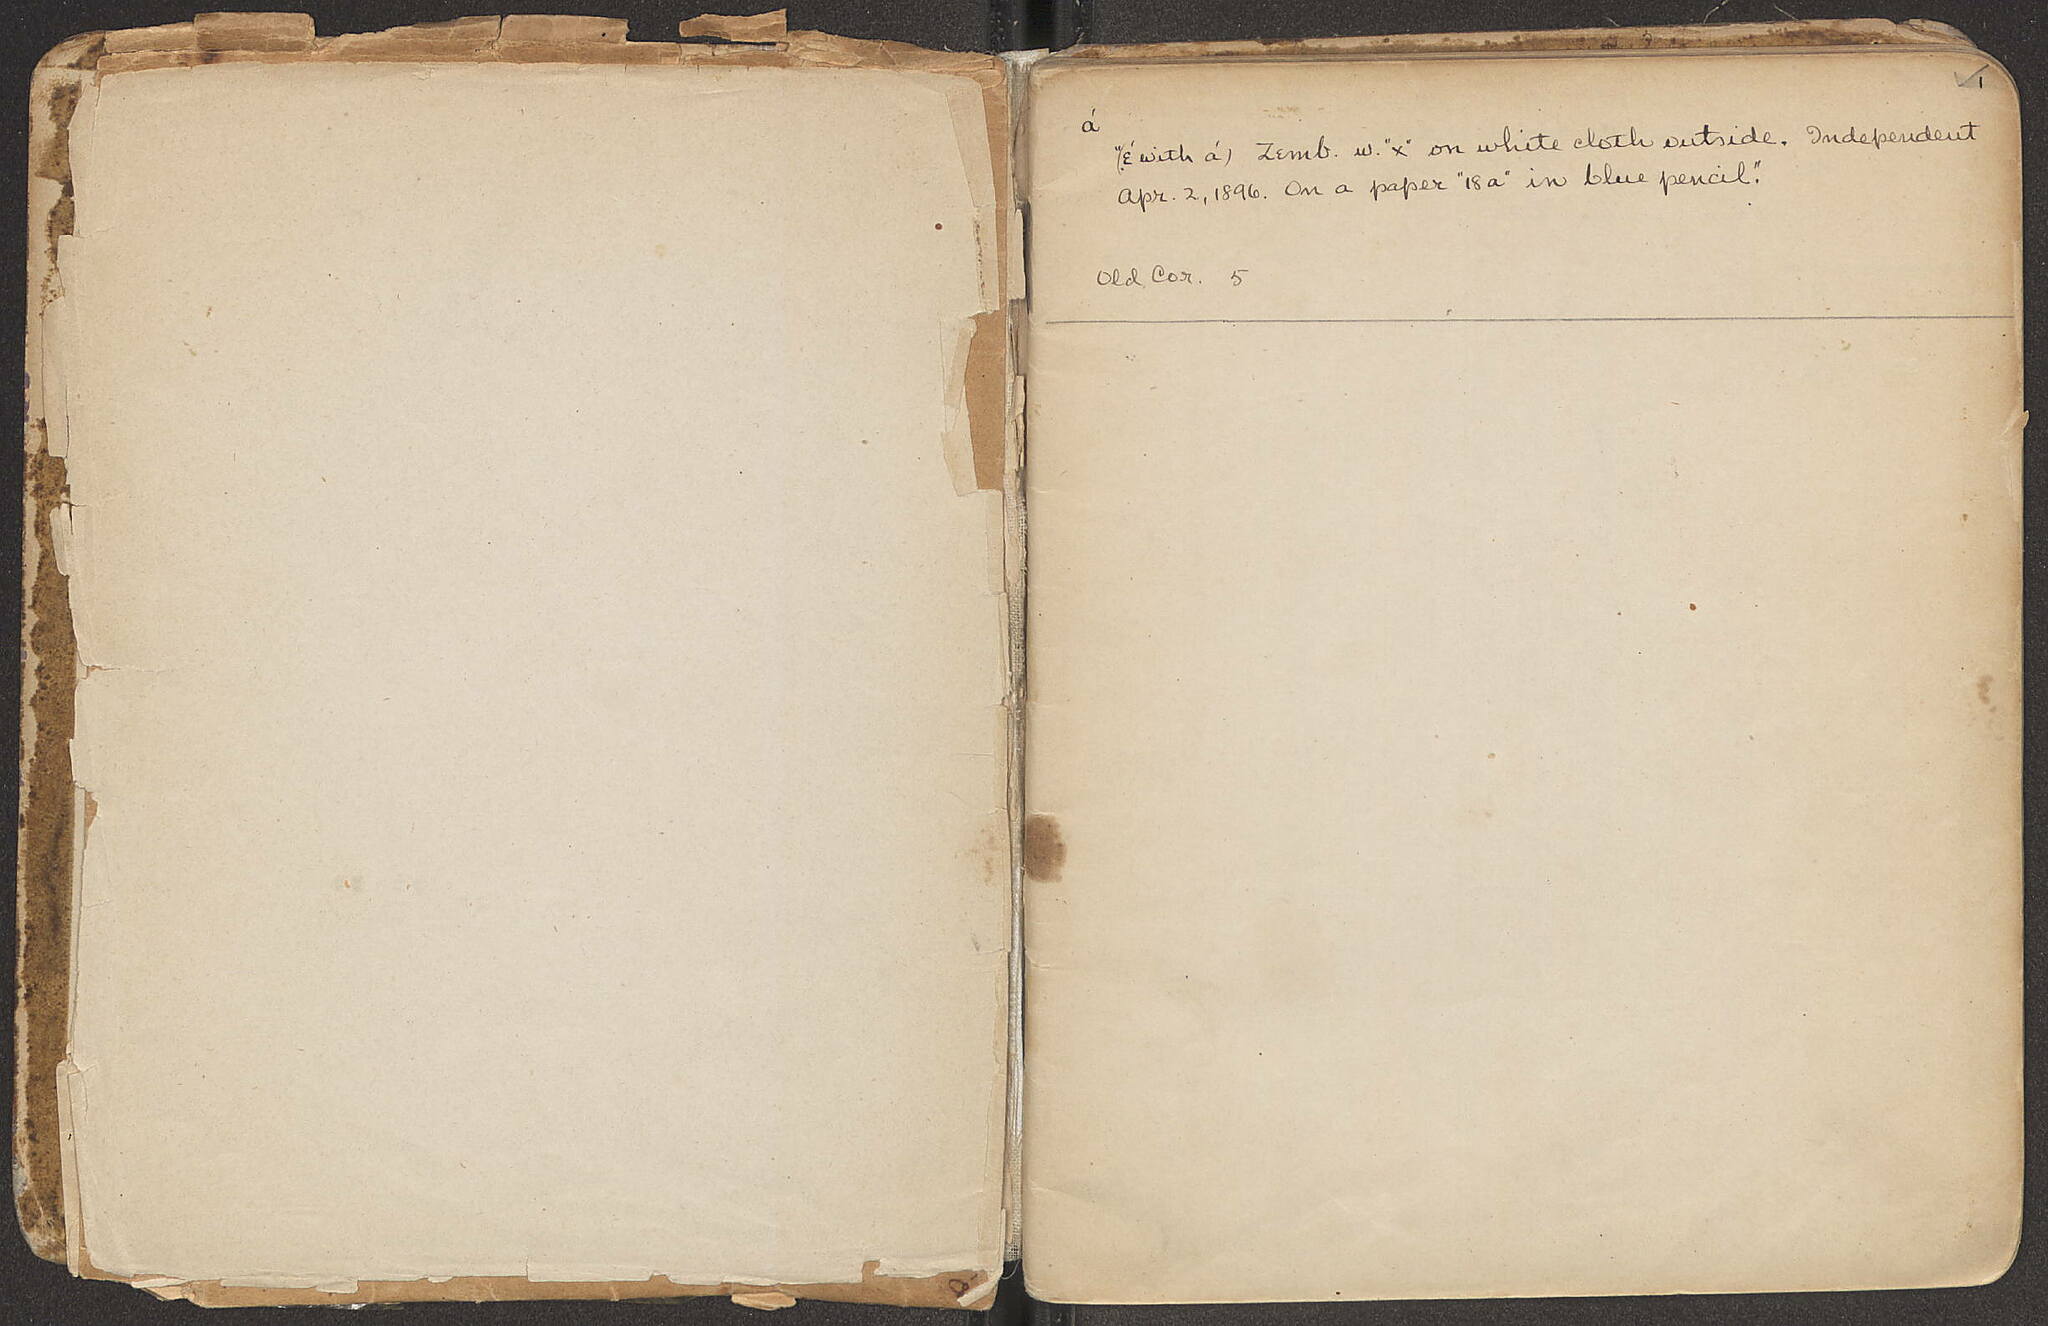 1
á
"(é with á) Zemb. w. "x" on white cloth outside. Independent
Apr. 2, 1896. On a paper "18a" in blue pencil."
Old Cor. 5